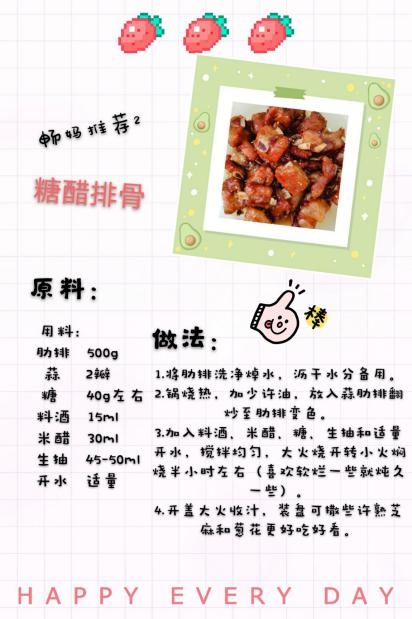 畅妈推荐2
糖醋排骨
原料:
用料:
肋排 500g
蒜 2瓣
糖 40g左右
料酒 15ml
米醋 30ml
生抽 45-50ml
开水 适量
棒
做法:
1.将肋排洗净焯水，沥干水分备用。
2.锅烧热，加少许油，放入蒜肋排翻
炒至肋排变色。
3.加入料酒、米醋、糖、生抽和适量
开水，搅拌均匀，大火烧开转小火焖
烧半小时左右（喜欢软烂一些就炖久
一些）。
4.开盖大火收汁，装盘可撒些许熟芝
麻和葱花更好吃好看。
HAPPY EVERY DAY